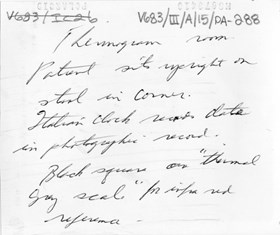 V683/II/A/15/DA-288
Thermogram room
Patient sits upright on
stool in corner.
Station clock records data
in photographic record.
Black square on "thermal
Gray scale" for infra red
reference.